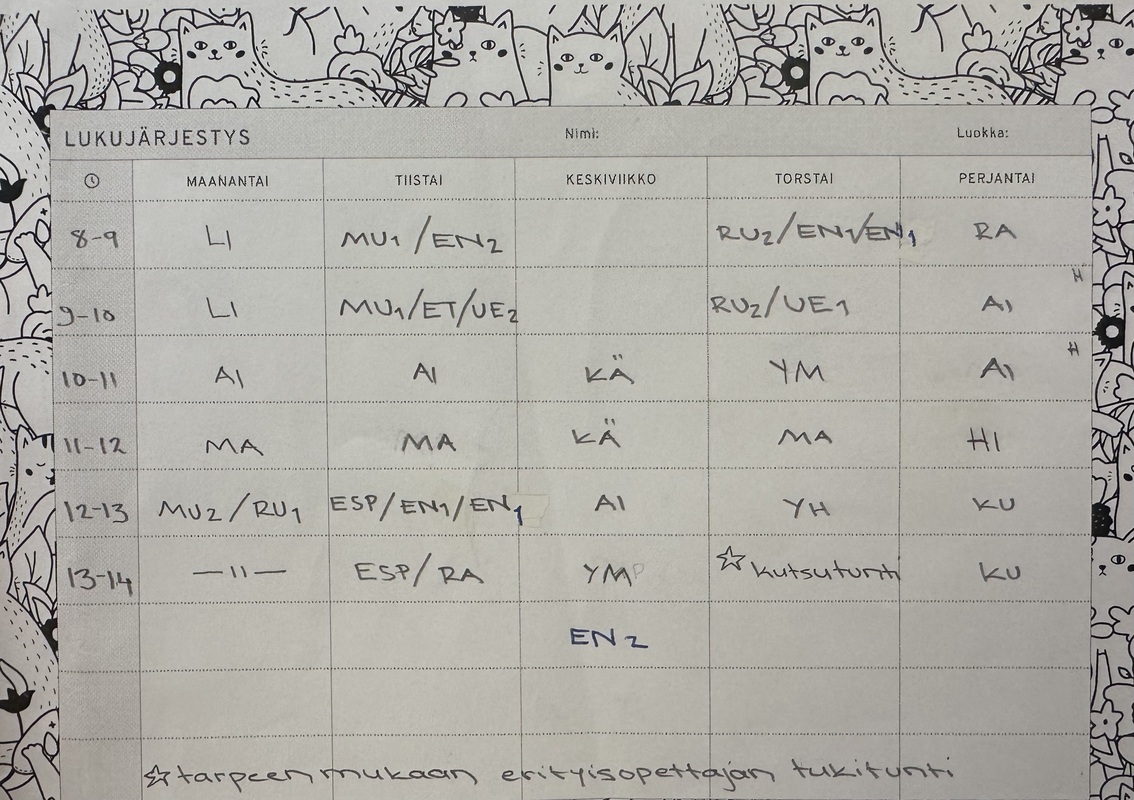 LUKUJÄRJESTYS Nimi: Luokka:
MAANANTAI TIISTAI KESKIVIIKKO TORSTAI PERJANTAI
8-9 LI MU1/EN2 RU2/EN1/EN1 RA
9-10 LI MU1/ET/UE2 RU2/UE1 AI H
10-11 AI AI KÄ YM AI H
11-12 MA MA KÄ MA HI
12-13 MU2/RU1 ESP/EN1/EN1 AI YH KU
13-14 —11— ESP/RA YMP ☆ kutsutunti KU
EN2
☆ tarpeen mukaan erityisopettajan tukitunti